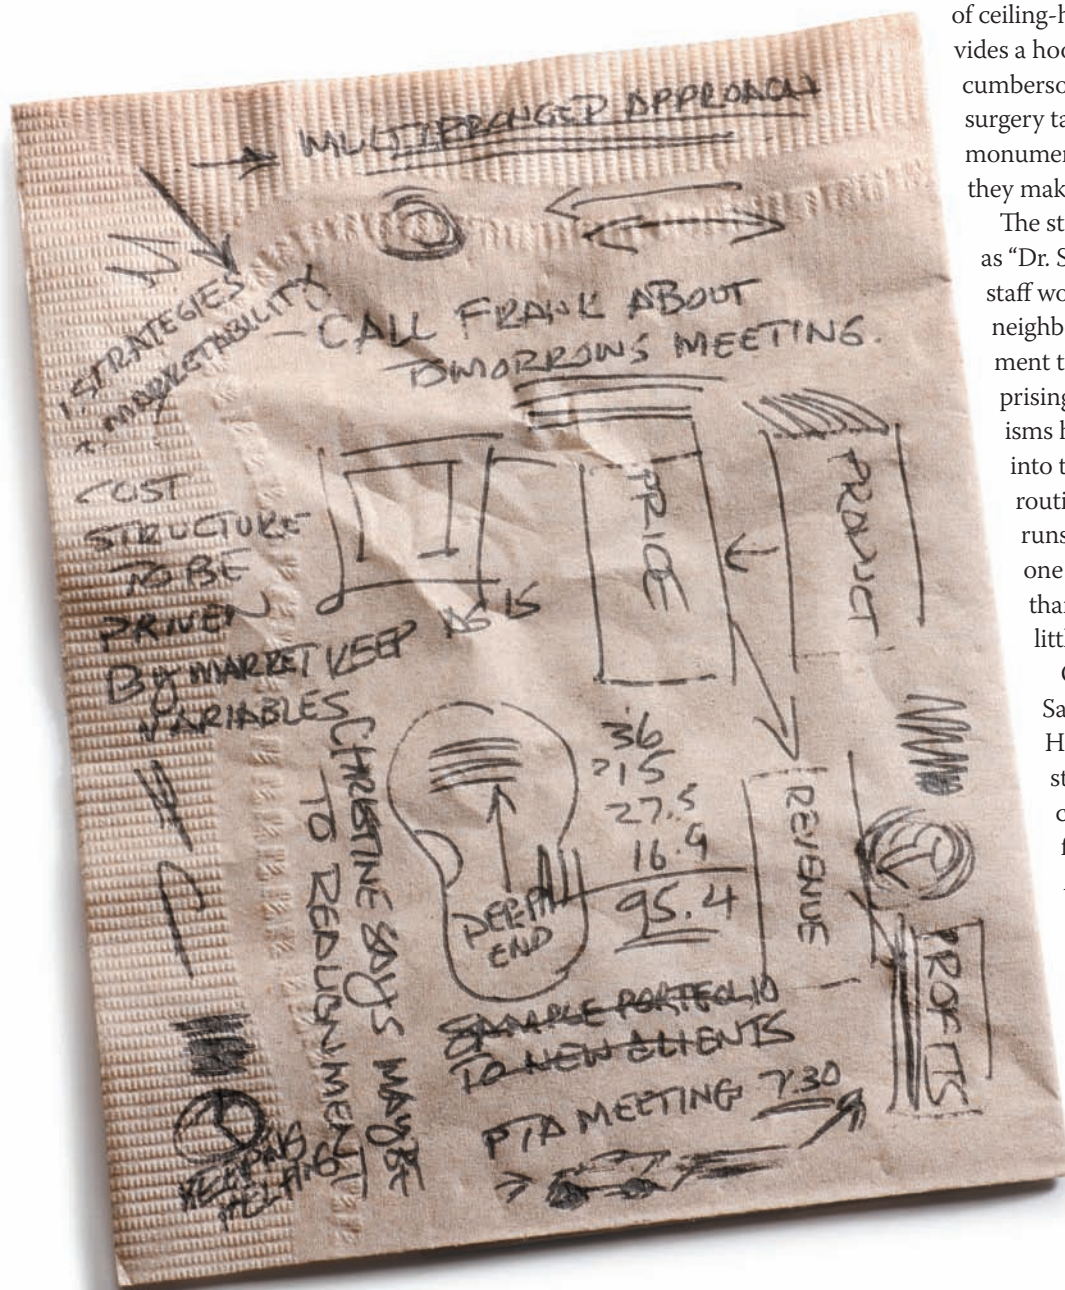 → MULTIPRONGED APPROACH
1. STRATEGIES
MARKETABILITY
- CALL FRANK ABOUT
TOMORROWS MEETING.
COST
STRUCTURE
TO BE
DRIVEN
BY MARKET
VARIABLES
KEEP AS IS
PRICE
PRODUCT
REVENUE
PROFITS
36
15
27.5
16.9
95.4
DEEP
END
CHRISTINE SAYS MAYBE
TO REALIGNMENT
SAMPLE PORTFOLIO
TO NEW CLIENTS
PTA MEETING 7:30
of ceiling-h
vides a hoo
cumberso
surgery ta
monumen
they mak
The st
as “Dr. S
staff wo
neighb
ment t
prising
isms h
into t
routi
runs
one
than
littl
Sa
H
st